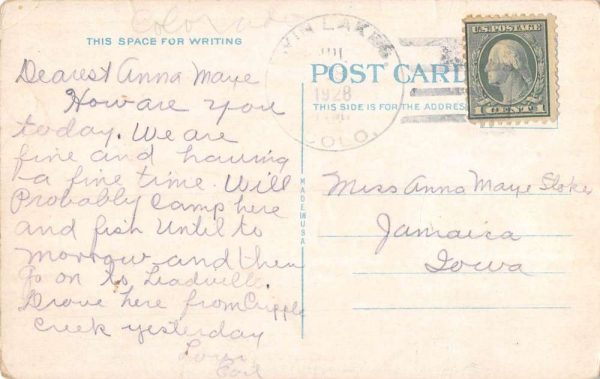 Colorado
THIS SPACE FOR WRITING
Dearest Anna Maye
How are you
today. We are
fine and having
a fine time. Will
Probably camp here
and fish Until to
morrow and then
go on to Leadville.
Drove here from Cripple
Creek yesterday
MADE IN USA
TWIN LAKES
JUL
1928
COLO.
POST CARD
THIS SIDE IS FOR THE ADDRESS
U.S. POSTAGE
1 CENT 1
Miss Anna Maye
Jamaica
Iowa